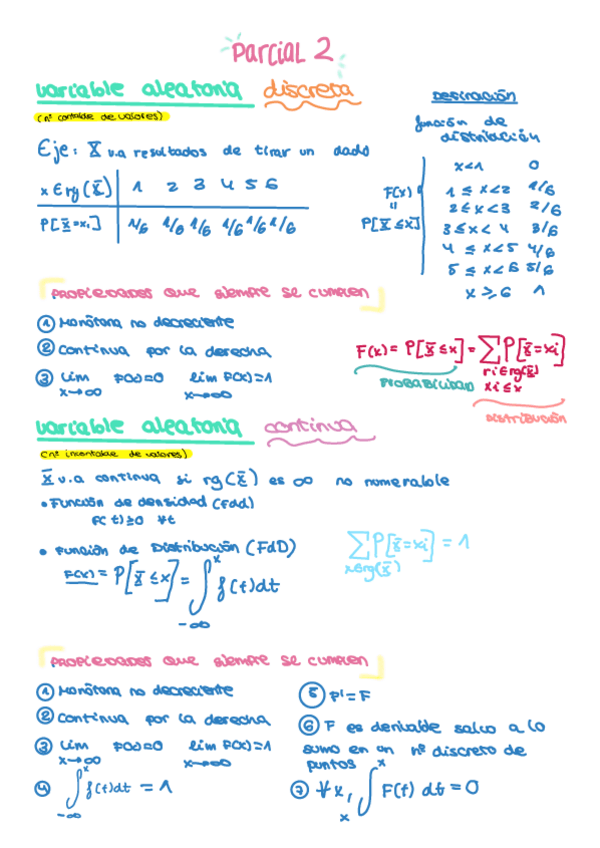 Parcial 2
variable aleatoria discreta
(nº contable de valores)
Definición
función de
distribución
Eje: X v.a resultados de tirar un dado
x ∈ rg(X) 1 2 3 4 5 6
P[X=xi] 1/6 1/6 1/6 1/6 1/6 1/6
F(x)
=
P[X≤x]
x<1 0
1 ≤ x<2 1/6
2 ≤ x < 3 2/6
3 ≤ x < 4 3/6
4 ≤ x<5 4/6
5 ≤ x<6 5/6
x ≥ 6 1
PROPIEDADES QUE SIEMPRE SE CUMPLEN
① Monótona no decreciente
② Continua por la derecha
③ Lim F(x)=0 lim F(x)=1
x→∞ x→∞
F(x) = P[X≤x] = ∑ P[X=xi]
xi∈rg(X)
xi≤x
PROBABILIDAD
DISTRIBUCIÓN
variable aleatoria continua
(nº incontable de valores)
X v.a continua si rg(X) es ∞ no numerable
• Función de densidad (Fdd)
F(t)≥0 ∀t
• Función de Distribución (FdD)
F(x) = P[X≤x] = ∫ f(t)dt
x
-∞
∑ P[X=xi] = 1
x∈rg(X)
PROPIEDADES QUE SIEMPRE SE CUMPLEN
① Monótona no decreciente
② Continua por la derecha
③ Lim F(x)=0 lim F(x)=1
x→∞ x→∞
④ ∫ f(t)dt = 1
x
-∞
⑤ F' = F
⑥ F es derivable salvo a lo
sumo en un nº discreto de
puntos
⑦ ∀x, ∫ F(t) dt = 0
x
x